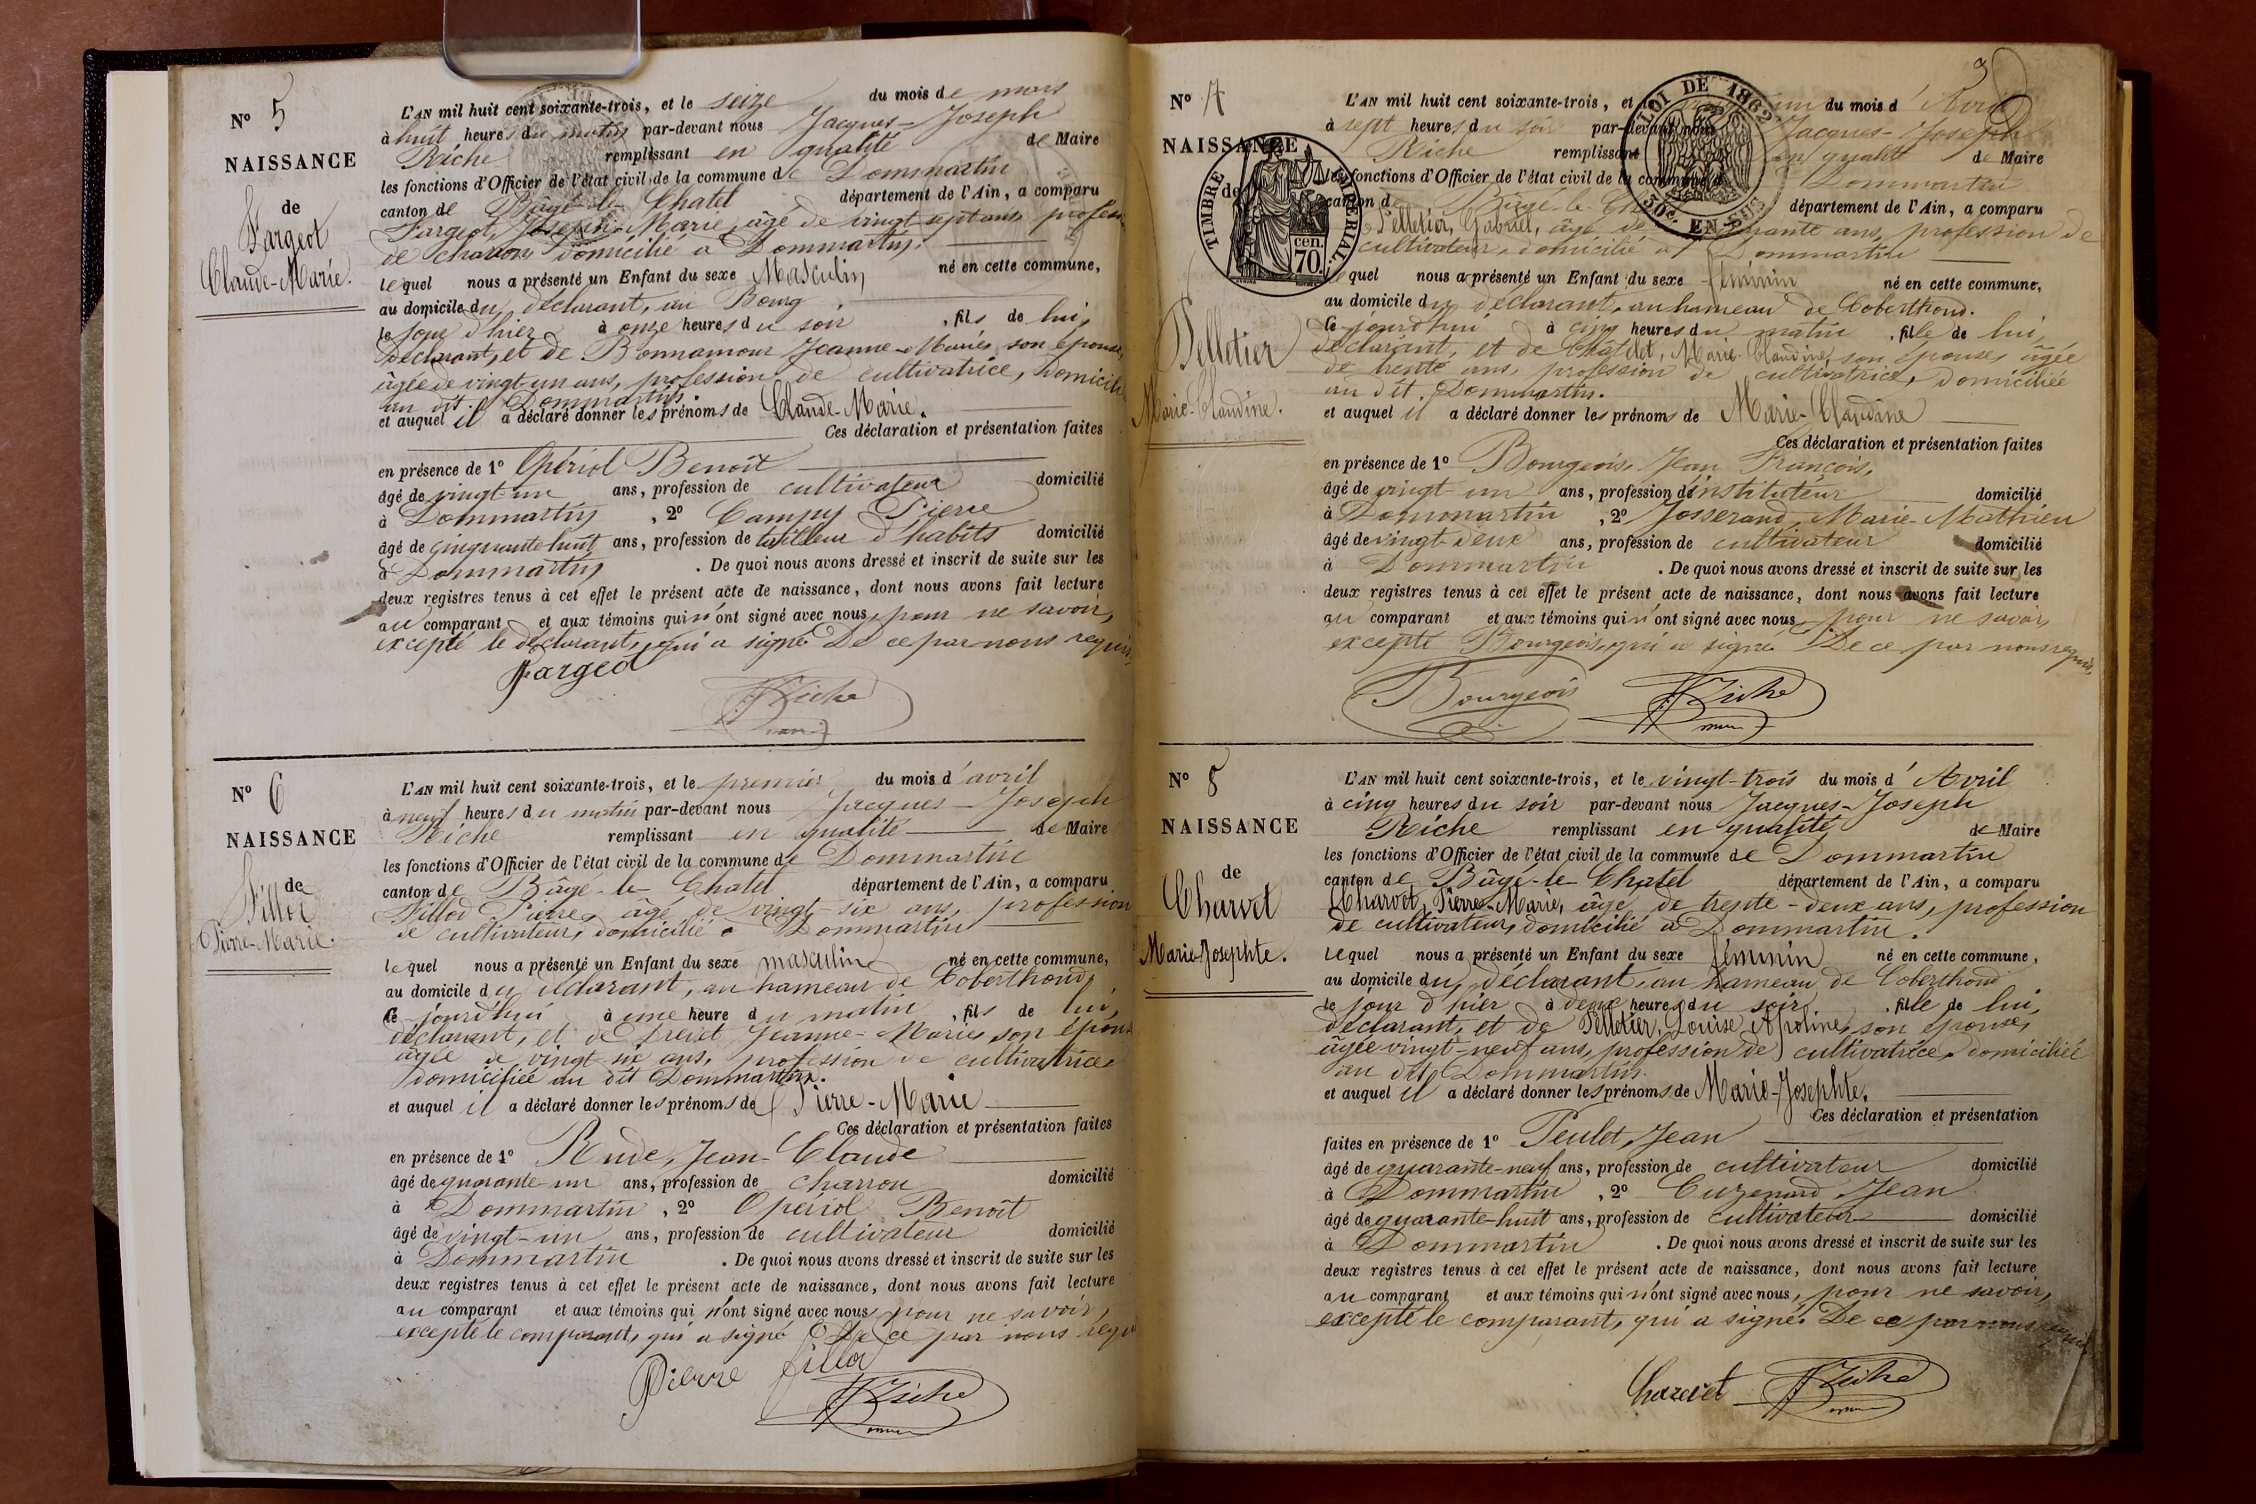 N° 5
NAISSANCE
de
Fargeot
Claude-Marie.
L'AN mil huit cent soixante-trois, et le seize du mois de mars
à huit heures du matin par-devant nous Jacques-Joseph
Riche remplissant en qualité de Maire
les fonctions d'Officier de l'état civil de la commune de Dommartin
canton de Bâgé-le-Chatel département de l'Ain, a comparu
Fargeot, Joseph-Marie, âgé de vingt-sept ans, profession
de charron, domicilié à Dommartin,
lequel nous a présenté un Enfant du sexe Masculin né en cette commune,
au domicile du déclarant, au Bourg.
le jour d'hier à onze heures du soir, fils de lui,
déclarant, et de Bonnamour Jeanne-Marie, son épouse,
âgée de vingt-un ans, profession de cultivatrice, domiciliée
au dit Dommartin.
et auquel il a déclaré donner les prénoms de Claude-Marie.
Ces déclaration et présentation faites
en présence de 1° Opériol Benoît
âgé de vingt-un ans, profession de cultivateur domicilié
à Dommartin, 2° Campy Pierre
âgé de cinquante-huit ans, profession de tailleur d'habits domicilié
à Dommartin. De quoi nous avons dressé et inscrit de suite sur les
deux registres tenus à cet effet le présent acte de naissance, dont nous avons fait lecture
au comparant et aux témoins qui n'ont signé avec nous, pour ne savoir,
excepté le déclarant, qui a signé De ce par nous requis.
Fargeot
Riche
N° 6
NAISSANCE
de
Fillod
Pierre-Marie.
L'AN mil huit cent soixante-trois, et le premier du mois d'avril
à neuf heures du matin par-devant nous Jacques-Joseph
Riche remplissant en qualité de Maire
les fonctions d'Officier de l'état civil de la commune de Dommartin
canton de Bâgé-le-Chatel département de l'Ain, a comparu
Fillod Pierre, âgé de vingt-six ans, profession
de cultivateur, domicilié à Dommartin
lequel nous a présenté un Enfant du sexe masculin né en cette commune,
au domicile du déclarant, au hameau de Coberthoud,
ce-jourd'hui à une heure du matin, fils de lui,
déclarant, et de Jeanne-Marie, son épouse
âgée de vingt-six ans, profession de cultivatrice
domiciliée au dit Dommartin.
et auquel il a déclaré donner les prénoms de Pierre-Marie
Ces déclaration et présentation faites
en présence de 1° Rude, Jean-Claude
âgé de quarante-un ans, profession de charron domicilié
à Dommartin, 2° Opériol Benoît
âgé de vingt-un ans, profession de cultivateur domicilié
à Dommartin. De quoi nous avons dressé et inscrit de suite sur les
deux registres tenus à cet effet le présent acte de naissance, dont nous avons fait lecture
au comparant et aux témoins qui n'ont signé avec nous, pour ne savoir,
excepté le comparant, qui a signé De ce par nous requis
Pierre fillod
Riche
3
N° 7
NAISSANCE
de
TIMBRE IMPERIAL
cen. 70
LOI DE 1862
50c. EN SUS
Pelletier
Marie-Claudine.
L'AN mil huit cent soixante-trois, et le du mois d'Avril
à sept heures du soir par-devant nous Jacques-Joseph
Riche remplissant en qualité de Maire
les fonctions d'Officier de l'état civil de la commune de Dommartin
canton de Bâgé-le-Chatel département de l'Ain, a comparu
Pelletier, Gabriel, âgé de ans, profession de
cultivateur, domicilié à Dommartin
lequel nous a présenté un Enfant du sexe féminin né en cette commune,
au domicile du déclarant, au hameau de Coberthoud.
ce-jourd'hui à cinq heures du matin, fille de lui,
déclarant, et de Châtelet, Marie-Claudine, son épouse, âgée
de trente ans, profession de cultivatrice, domiciliée
au dit Dommartin.
et auquel il a déclaré donner les prénoms de Marie-Claudine
Ces déclaration et présentation faites
en présence de 1° Bourgeois, Jean François,
âgé de vingt-un ans, profession d'instituteur domicilié
à Dommartin, 2° Josserand, Marie-Mathieu
âgé de vingt-deux ans, profession de cultivateur domicilié
à Dommartin. De quoi nous avons dressé et inscrit de suite sur les
deux registres tenus à cet effet le présent acte de naissance, dont nous avons fait lecture
au comparant et aux témoins qui n'ont signé avec nous, pour ne savoir,
excepté Bourgeois, qui a signé. De ce par nous requis.
Bourgeois
Riche
N° 8
NAISSANCE
de
Charvet
Marie-Josephte.
L'AN mil huit cent soixante-trois, et le vingt-trois du mois d'Avril
à cinq heures du soir par-devant nous Jacques-Joseph
Riche remplissant en qualité de Maire
les fonctions d'Officier de l'état civil de la commune de Dommartin
canton de Bâgé-le-Chatel département de l'Ain, a comparu
Charvet, Pierre-Marie, âgé de trente-deux ans, profession
de cultivateur, domicilié à Dommartin.
lequel nous a présenté un Enfant du sexe féminin né en cette commune,
au domicile du déclarant, au hameau de Coberthoud
le jour d'hier à deux heures du soir, fille de lui,
déclarant, et de Pelletier, Louise Apoline, son épouse,
âgée vingt-neuf ans, profession de cultivatrice, domiciliée
au dit Dommartin.
et auquel il a déclaré donner les prénoms de Marie-Josephte.
Ces déclaration et présentation
faites en présence de 1° Peulet, Jean
âgé de quarante-neuf ans, profession de cultivateur domicilié
à Dommartin, 2° Jean
âgé de quarante-huit ans, profession de cultivateur domicilié
à Dommartin. De quoi nous avons dressé et inscrit de suite sur les
deux registres tenus à cet effet le présent acte de naissance, dont nous avons fait lecture
au comparant et aux témoins qui n'ont signé avec nous, pour ne savoir,
excepté le comparant, qui a signé. De ce par nous requis
Charvet
Riche